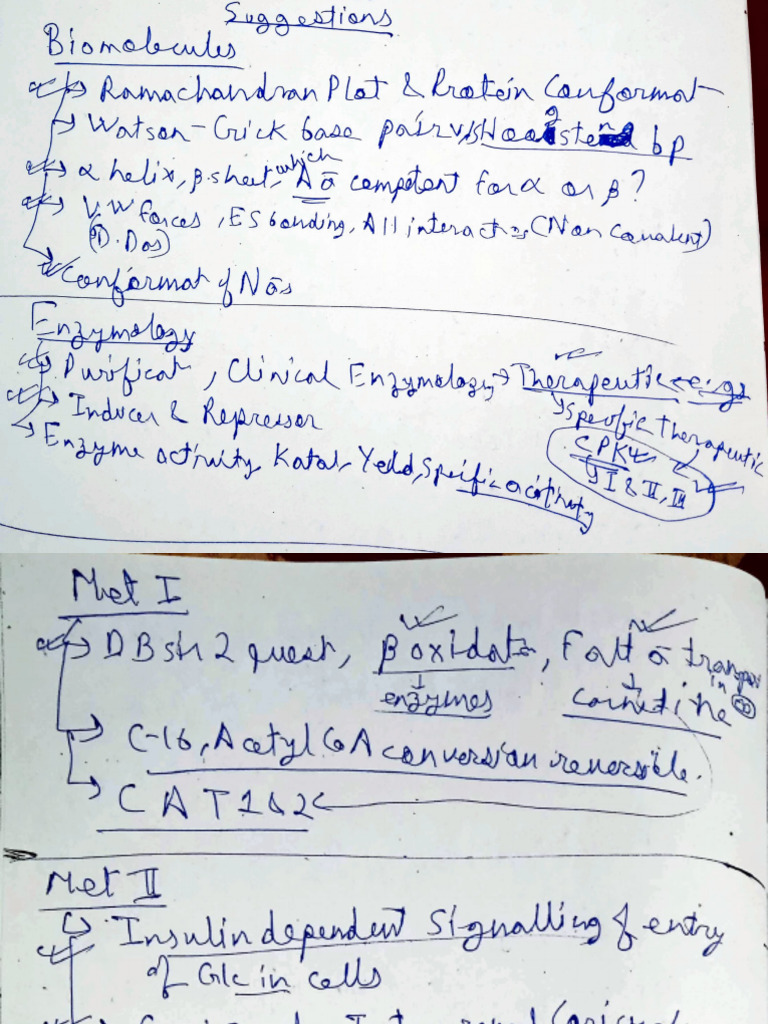 Suggestions
Biomolecules
Ramachandran Plot & Protein Conformat
Watson-Crick base pair v/s Hoogsteen bp
α helix, β sheet, which Aā competent for α or β?
V.W forces, ES bonding, All interact (Non Covalent)
(D. Das)
Conformat of Nās
Enzymology
Purificat, Clinical Enzymology → Therapeutic e.gs
Inducer & Repressor
Specific therapeutic
Enzyme activity, Katal, Yeld, Specific acitivity
CPK
I & II, III
Met I
DB sir 2 quest, β oxidat, Fatt ā transport in
enzymes carnitine
C-16, Acetyl CoA conversion reversible.
CAT 1 & 2
Met II
Insulin dependent Signalling of entry
of Glc in cells